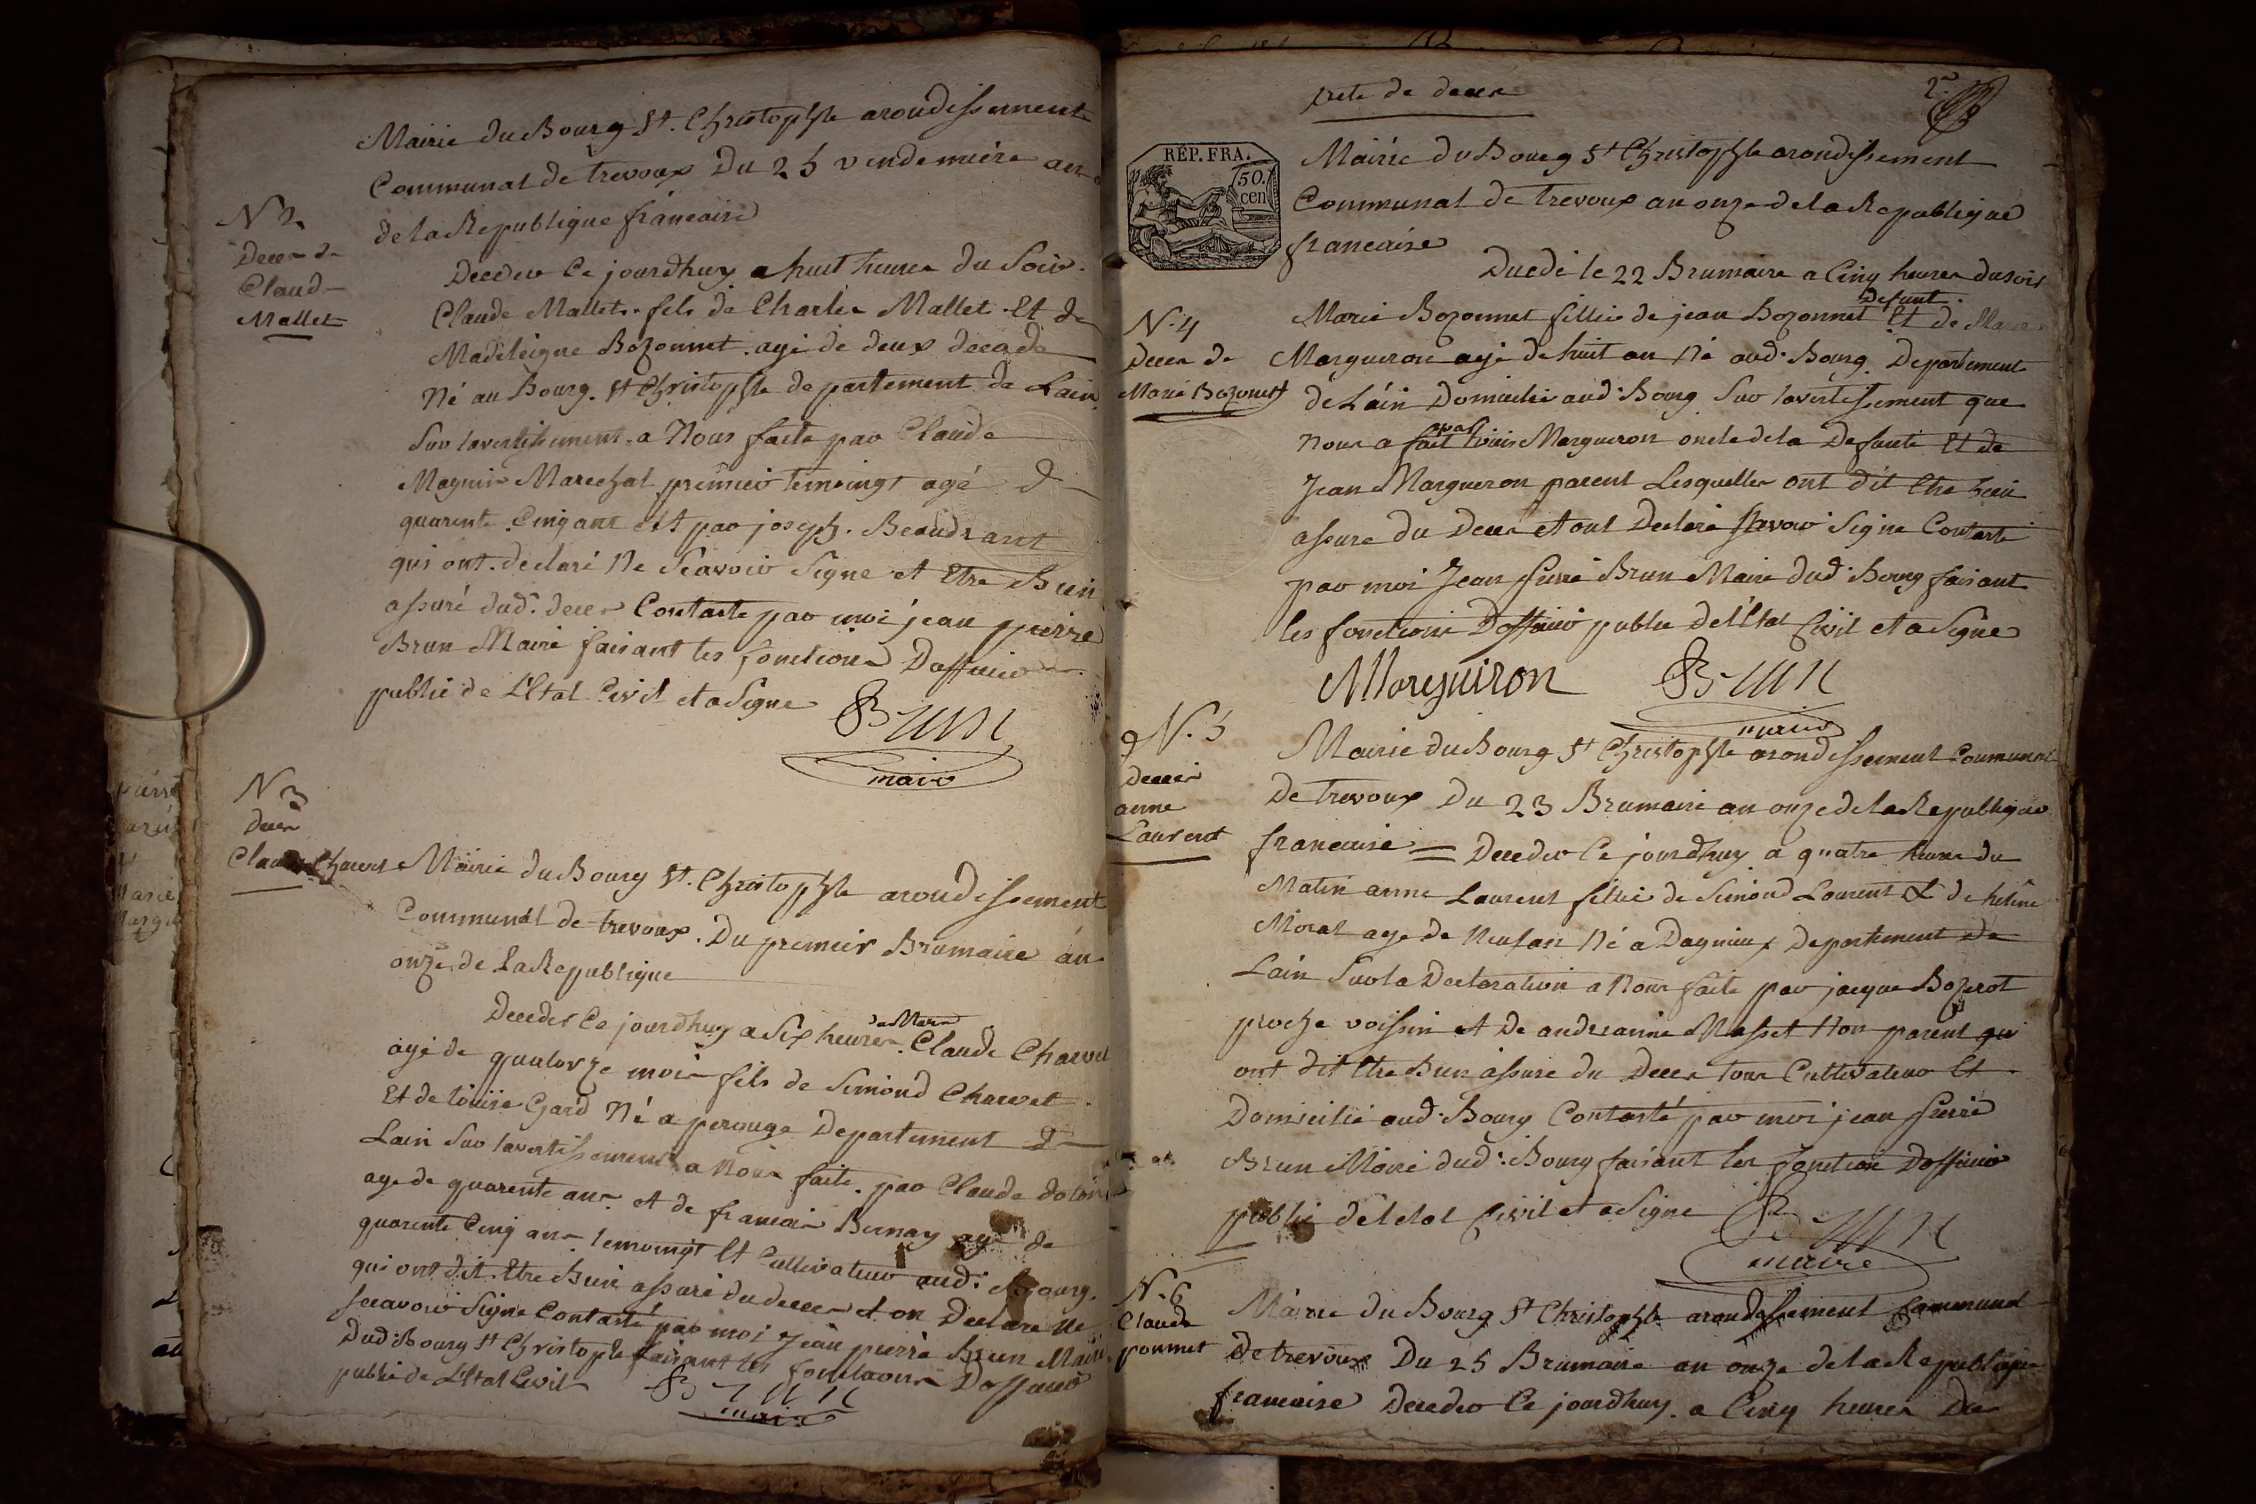 Mairie du Bourg St. Christophle arondissement
Communal de trevoux Du 25 vendemiere an
de la Republique francaise
N 2
Deces de
Claude
Mallet
Decedes Ce jourdhuy a huit heures du Soir
Claude Mallet fils de Charles Mallet Et de
Madeleigne Bozonnet agé de deux decade
Né au Bourg St Christophle departement de Lain
Sur lavertissement a Nous faite par Claude
Magnin Marechal premier temoingt agé de
quarente Cinq ans et par joseph Beaudrant
qui ont declaré Ne Scavoir Signe et Etre Bien
assuré dud. deces Contaste par moi jean pierre
Brun Maire faisant les fonctions Dofficier
public de L'Etat Civil et a Signe
Brun
maire
N 3
deces
Claude Charvet
Mairie du Bourg St. Christophle arondissement
Communal de trevoux. Du premier Brumaire an
onze de La Republique
de Matin
Decedes Ce jourdhuy a Six heures Claude Charvet
agé de quatorze mois fils de Simond Charvet
Et de Louise Gard Né a perouge Departement de
Lain Sur lavertissement a Nous faite par Claude
age de quarente ans et de francois Bernay agé de
quarente Cinq ans temoingt Et Cultivateur aud. Bourg
qui ont dit Etre Bien assuré du deces et on Declare Ne
Scavoir Signe Contasté par moi Jean pierre Brun Maire
Dud. Bourg St Christophle faisant les fonctions Dofficier
public de L'Etat Civil
Brun
maire
acte de deces
2e
RÉP. FRA.
50.
cen
Mairie du Bourg St Christophle arondissement
Communal de trevoux an onze de la Republique
francaise
Ducedé le 22 Brumaire a Cinq heures du soir
N. 4
Deces de
Marie Bozonnet
defunt
Marie Bozonnet fillie de jean Bozonnet Et de Marie
Margueron agé de huit an Né aud. Bourg Departement
de Lain Domicilie aud. Bourg Sur lavertissement que
par
Nous a fait Louis Margueron oncle de la Defunte Et de
Jean Margueron parent Lesquelles ont dit Etre bien
assure du Deces et ont Declare Scavoir Signe Contasté
par moi Jean pierre Brun Maire dud. Bourg faisant
les fonctions Dofficier public de L'Etat Civil et a Signe
Marguiron
Brun
maire
N. 5
deces
anne
Laurent
Mairie du Bourg St Christophle arondissement Communal
De trevoux Du 23 Brumaire an onze de la Republique
francaise = Decedes Ce jourdhuy a quatre heures du
Matin anne Laurent fillie de Simond Laurent & de helene
Morat age de Neuf an Né a Dagnieux Departement de
Lain Sur la Declaration a Nous faite par jacque Bozerot
proche voissin et De andreanne Masset Non parent qui
ont dit Etre Bien assure du Deces tous Cultivateur Et
Domicilié aud. Bourg Contasté par moi jean pierre
Brun Maire dud. Bourg faisant les fonction Dofficier
public de l etat Civil et a Signe
Brun
maire
N. 6
Claude
ponnet
Mairie du Bourg St Christophle arondissement Communal
De trevoux Du 25 Brumaire an onze de la Republique
francaise Decedes Ce jourdhuy a Cinq heures Du